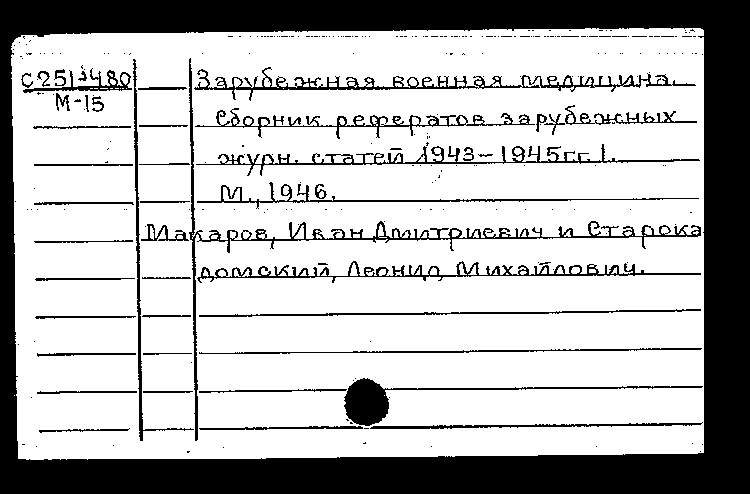 С251/480 Зарубежная военная медицина.
М-15
Сборник рефератов зарубежных
журн. статей 1943-1945гг1.
М., 1946.
Макаров, Иван Дмитриевич и Старока
домский, Леонид Михайлович.